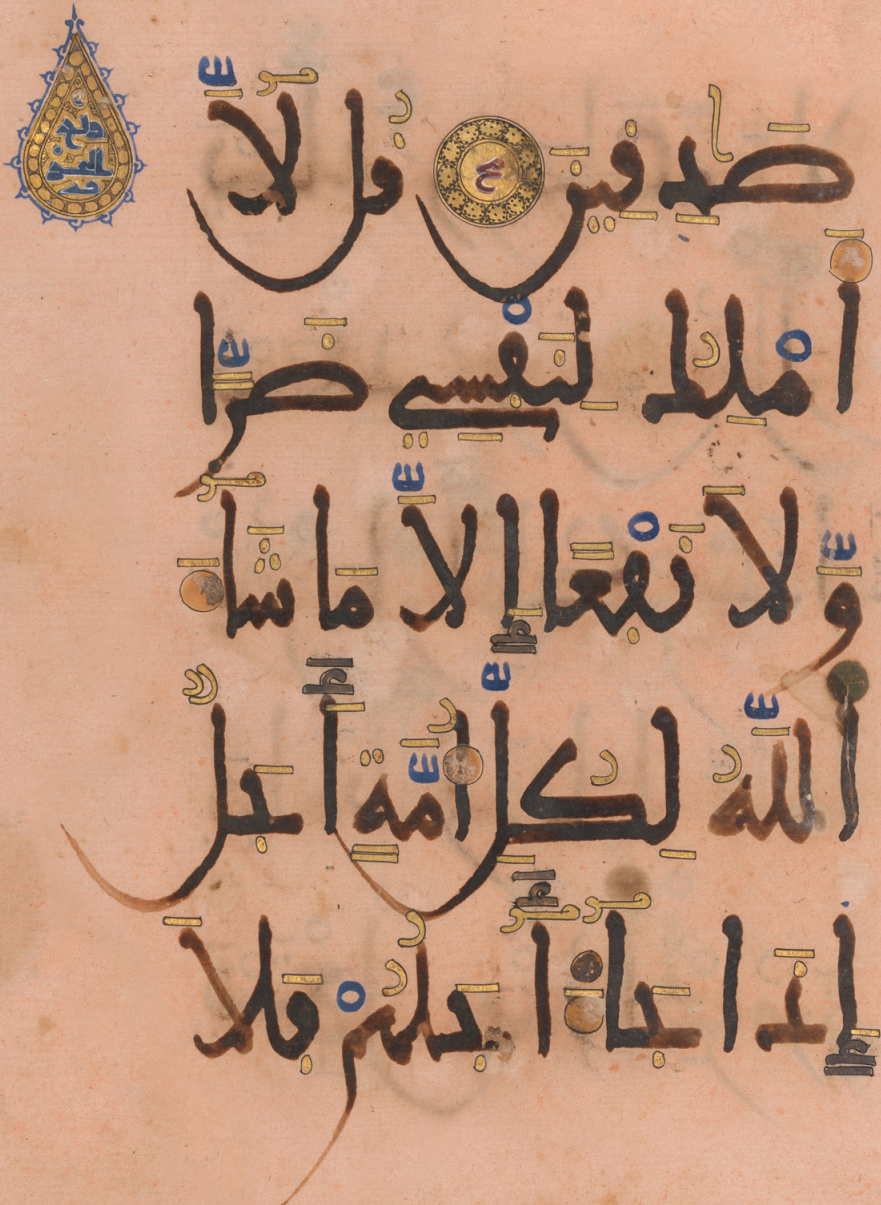 صَٰدِقِينَ قُل لَّآ
أَمْلِكُ لِنَفْسِے ضَرّاٗ
وَلَا نَفْعاً إِلَّا مَا شَآءَ
اَ۬للَّهُ لِكُلِّ أُمَّةٍ أَجَلٌ
إِذَا جَآءَ أَجَلُهُمْ فَلَا